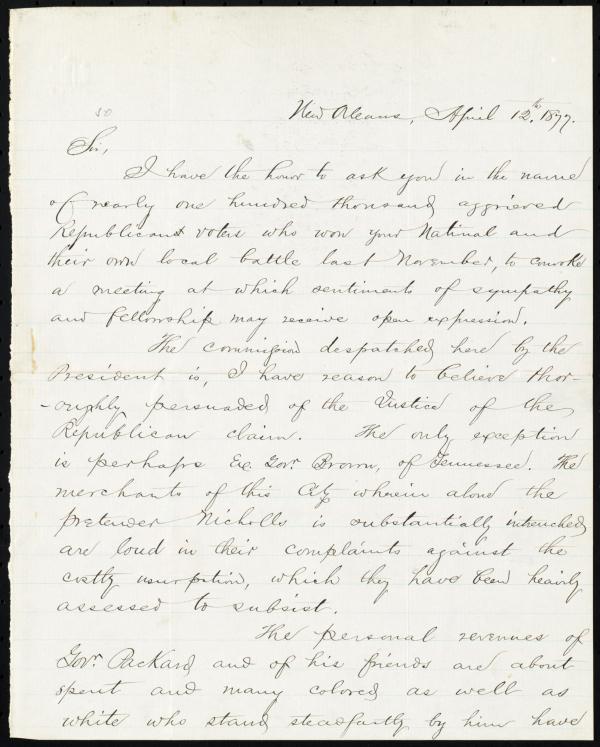 50
New Orleans, April 12th. 1877.
Sir,
I have the honor to ask you in the name
of nearly one hundred thousand aggrieved
Republican voters who won your National and
their own local battle last November, to convoke
a meeting at which sentiments of sympathy
and fellowship may receive open expression.
The commission despatched here by the
President is, I have reason to believe thor-
-oughly persuaded of the Justice of the
Republican claim. The only exception
is perhaps Ex. Govr. Brown, of Tennessee. The
merchants of this City wherein alone the
pretender Nicholls is substantially intrenched
are loud in their complaints against the
costly usurpation, which they have been heavily
assessed to subsist.
The personal revenues of
Govr. Packard and of his friends are about
spent and many colored as well as
white who stand steadfastly by him have